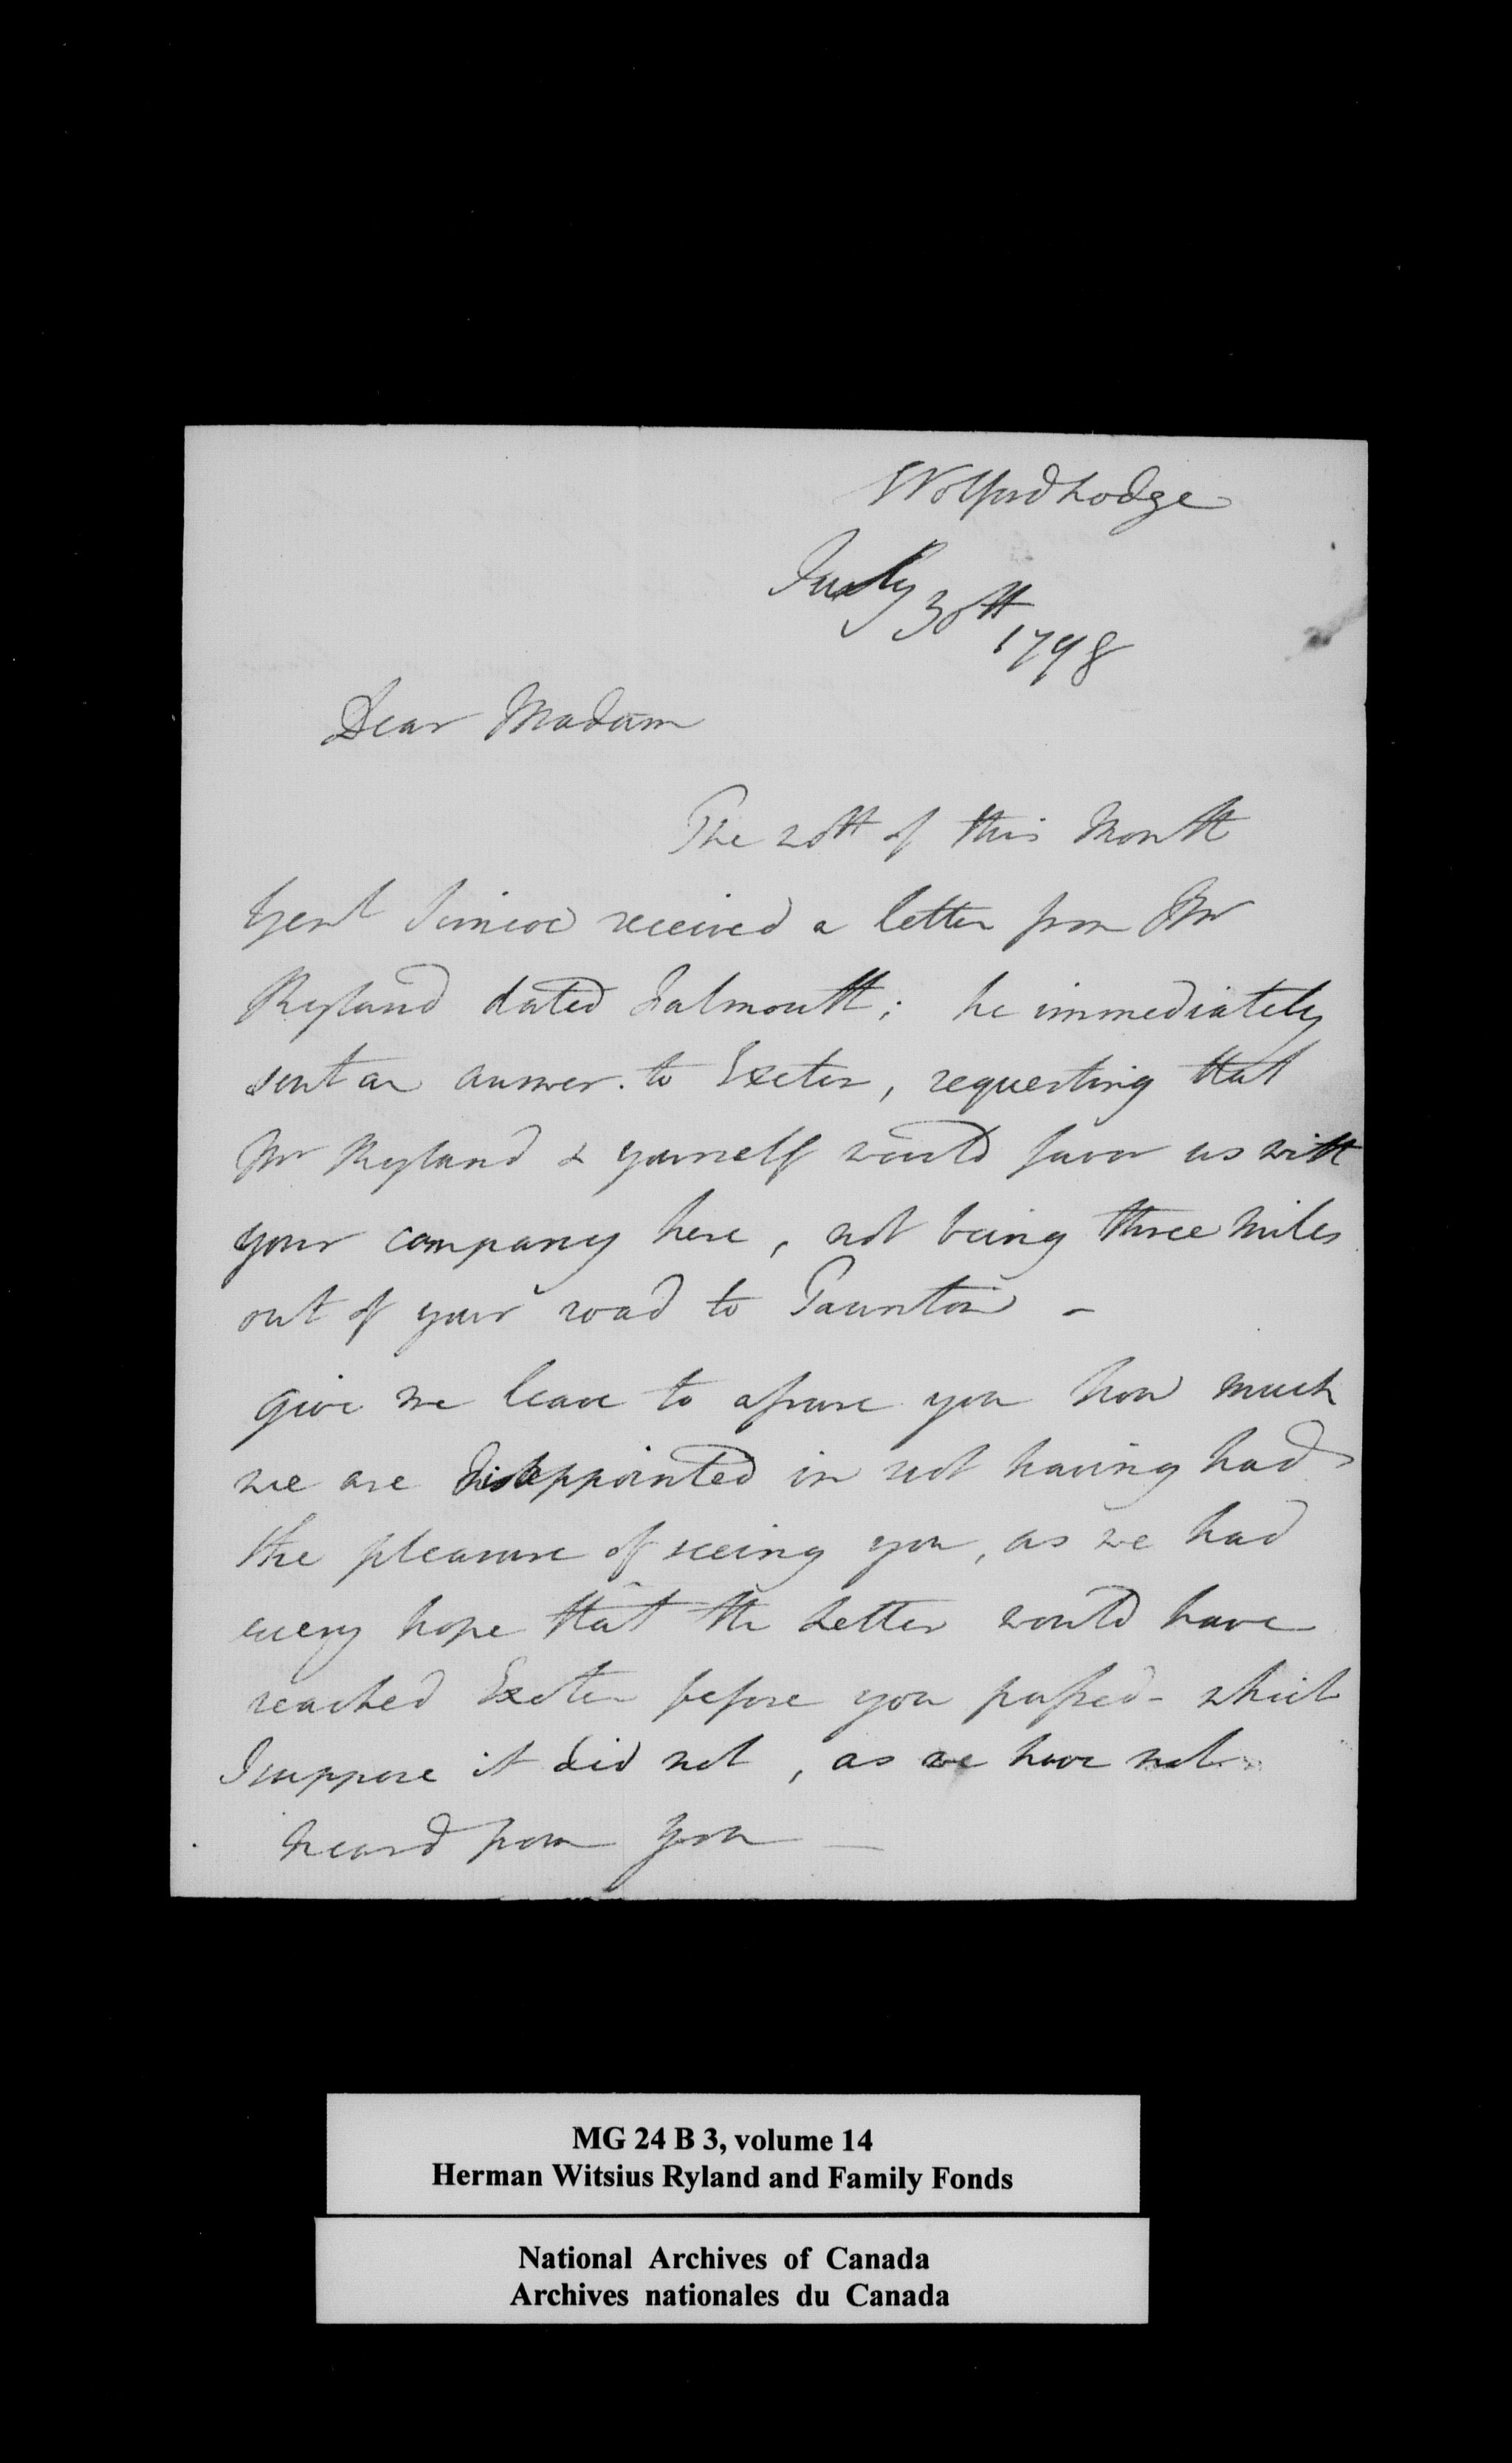 Wolford Lodge
July 30th
1798
Dear Madam
The 20th of this Month
Genl Simcoe received a letter from Mr
Ryland dated Falmouth; he immediately
sent an answer to Exeter, requesting that
Mr Ryland & yourself would favor us with
your company here, not being three miles
out of your road to Taunton -
give me leave to assure you how much
we are disappointed in not having had
the pleasure of seeing you, as we had
every hope that the Letter would have
reached Exeter before you passed - which
I suppose it did not, as we have not
heard from you -
MG 24 B 3, volume 14
Herman Witsius Ryland and Family Fonds
National Archives of Canada
Archives nationales du Canada